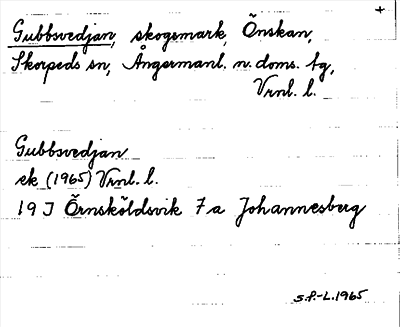 +
Gubbsvedjan, skogsmark, Önskan,
Skorpeds sn, Ångermanl. n. doms. tg,
Vrnl. l.
Gubbsvedjan
ek (1965) Vrnl. l.
19 J Örnsköldsvik 7 a Johannesberg
S.P.-L. 1965